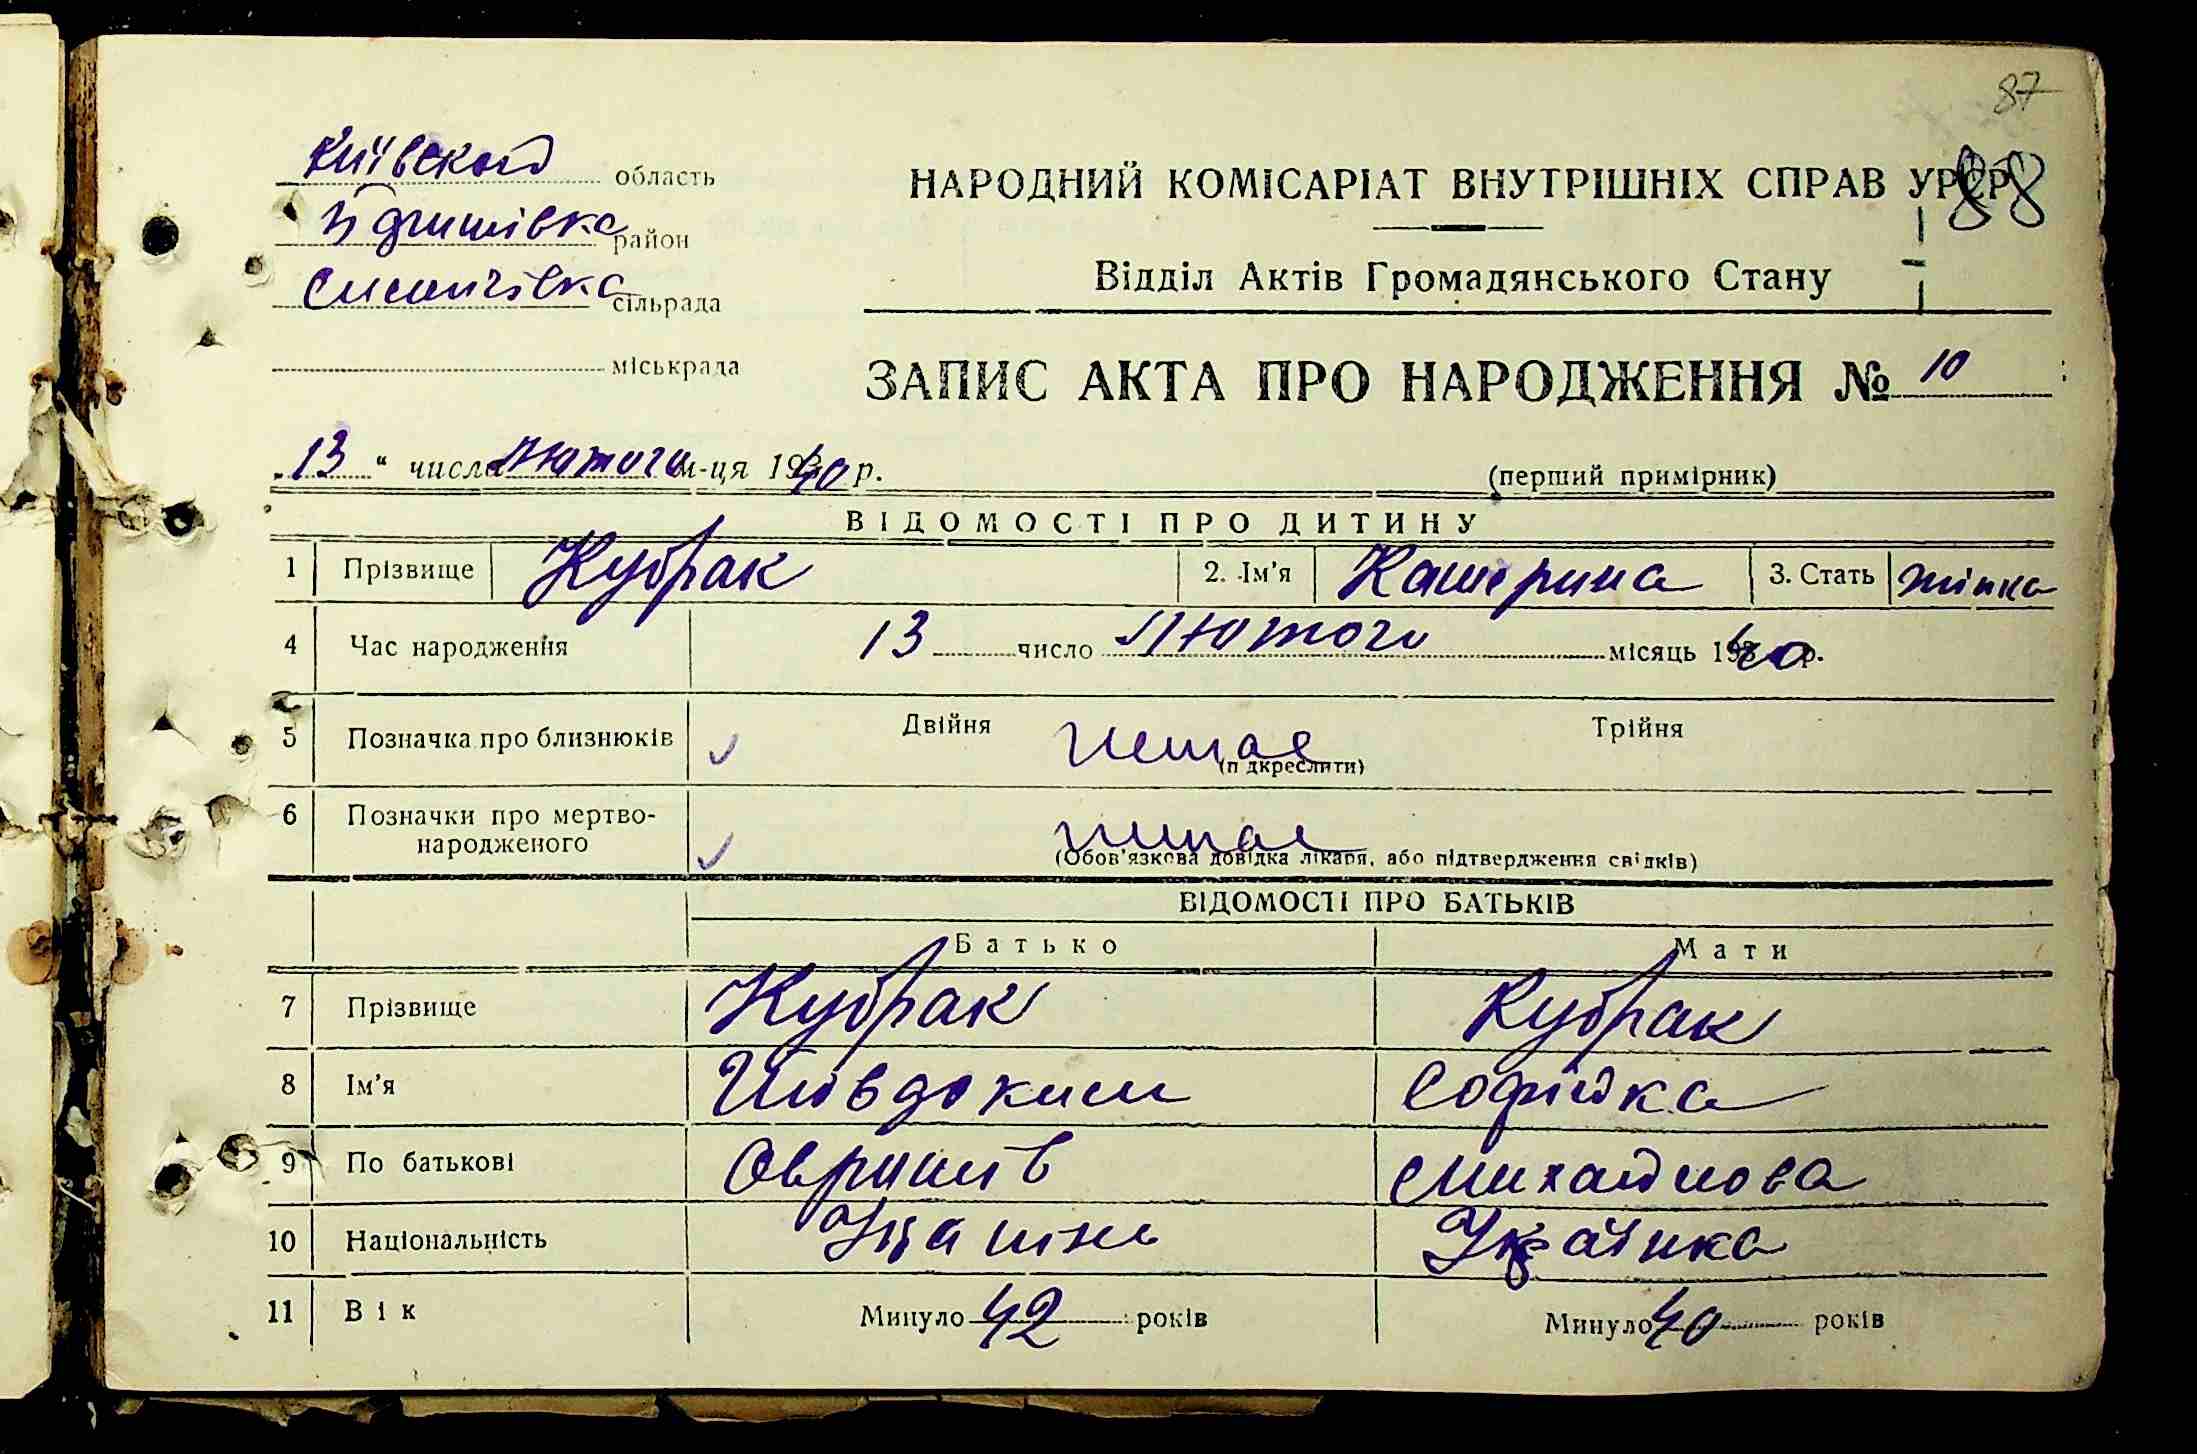 87
88
Київской область
район
сільрада
міськрада
НАРОДНИЙ КОМІСАРІАТ ВНУТРІШНІХ СПРАВ УРСР
Відділ Актів Громадянського Стану
ЗАПИС АКТА ПРО НАРОДЖЕННЯ № 10
„13“ числа лютого м-ця 1940 р.
(перший примірник)
ВІДОМОСТІ ПРО ДИТИНУ
1 Прізвище Кубрак 2. Ім'я Катерина 3. Стать жінка
4 Час народження 13 число лютого місяць 1940 р.
5 Позначка про близнюків Двійня немає Трійня
(підкреслити)
6 Позначки про мертво-
народженого немає
(Обов'язкова довідка лікаря, або підтвердження свідків)
ВІДОМОСТІ ПРО БАТЬКІВ
Батько Мати
7 Прізвище Кубрак Кубрак
8 Ім'я Йовдоким Софійка
9 По батькові Михайлова
10 Національність Українка
11 Вік Минуло 42 років Минуло 40 років